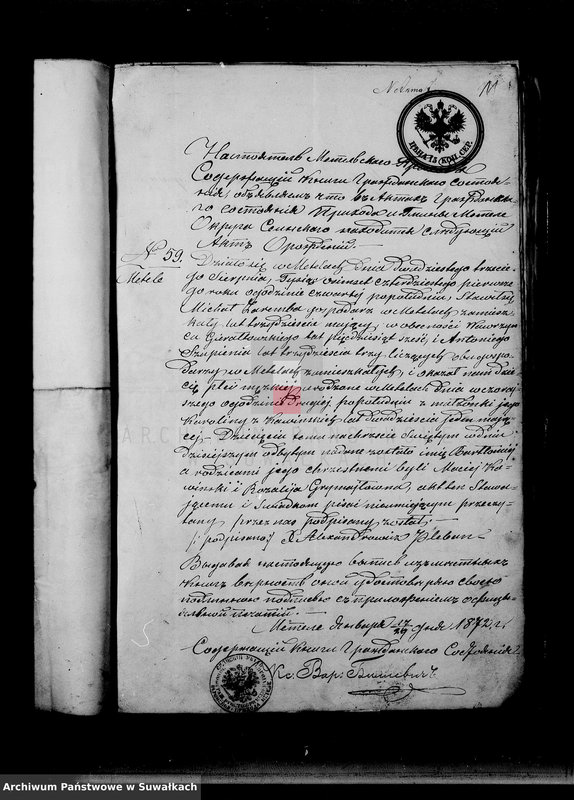 Настоятель Метельского Прихода
Содержащій Книги Гражданскаго Состоя-
нія, объявляетъ что въ Актахъ Гражданска-
го состоянія Прихода и Гмины Метеле
Округа Сейнскаго находится слѣдующій
Актъ О рожденіи. —
№ 59.
Metele
Działo się w Metelach dnia dwudziestego trzecie-
go Sierpnia, Tysiąc ośmset czterdziestego pierwsze-
go roku o godzinie czwartej popołudniu, Stawił się
Michał Zaremba gospodarz w Metelach zamiesz-
kały lat trzydzieście mający, w obecności Wawrzyń-
ca Gieratowskiego lat pięćdziesiąt sześć, i Antoniego
Szapienia lat trzydzieścia trzy liczących obu gospo-
darzy w Metelach zamieszkałych, i okazał nam dzie-
cię płci męzkiej urodzone w Metelach dnia wczoraj-
szego o godzinie drugiej popołudniu z małżonki jego
Karoliny z Kawińskich lat dwadzieścia jeden mają-
cej, — Dziecięciu temu na chrzcie Świętym w dniu
dzisiejszym odbytym nadane zostało imię Bartłomiej
a rodzicami jego chrzestnemi byli Maciej Ka-
wiński i Rozalija Grymajłówna, akt ten Stawa-
jącemu i Świadkom pisać nieumiejącym przeczy-
tany, przez nas podpisany został. —
/: podpisano :/ X. Alexandrowicz Pleban —
Выдавая настоящую выпись изъ мѣстныхъ
Книгъ вѣрность оной удостовѣряю своего
подлинною подписью съ приложеніемъ оффици-
альной печати. —
Метеле Января 17/29 дня 1872 г.
Содержащій Книги Гражданскаго Состоянія
Кс. Вар.
Archiwum Państwowe w Suwałkach